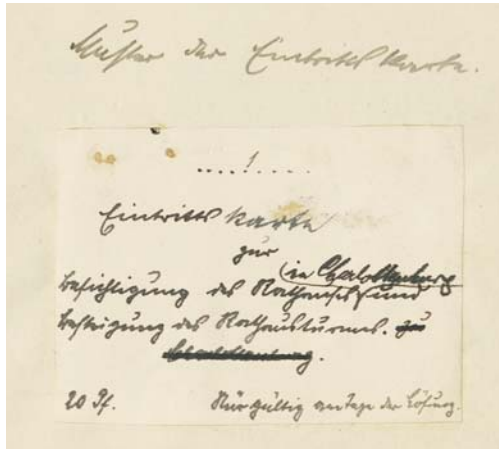 Muster der Eintrittskarte.
1
Eintrittskarte
zur
(in Charlottenburg
Besichtigung des Rathauses und
Besteigung des Rathausturmes. zu
Charlottenburg.
20 Pf. Nur gültig am Tage der Lösung.